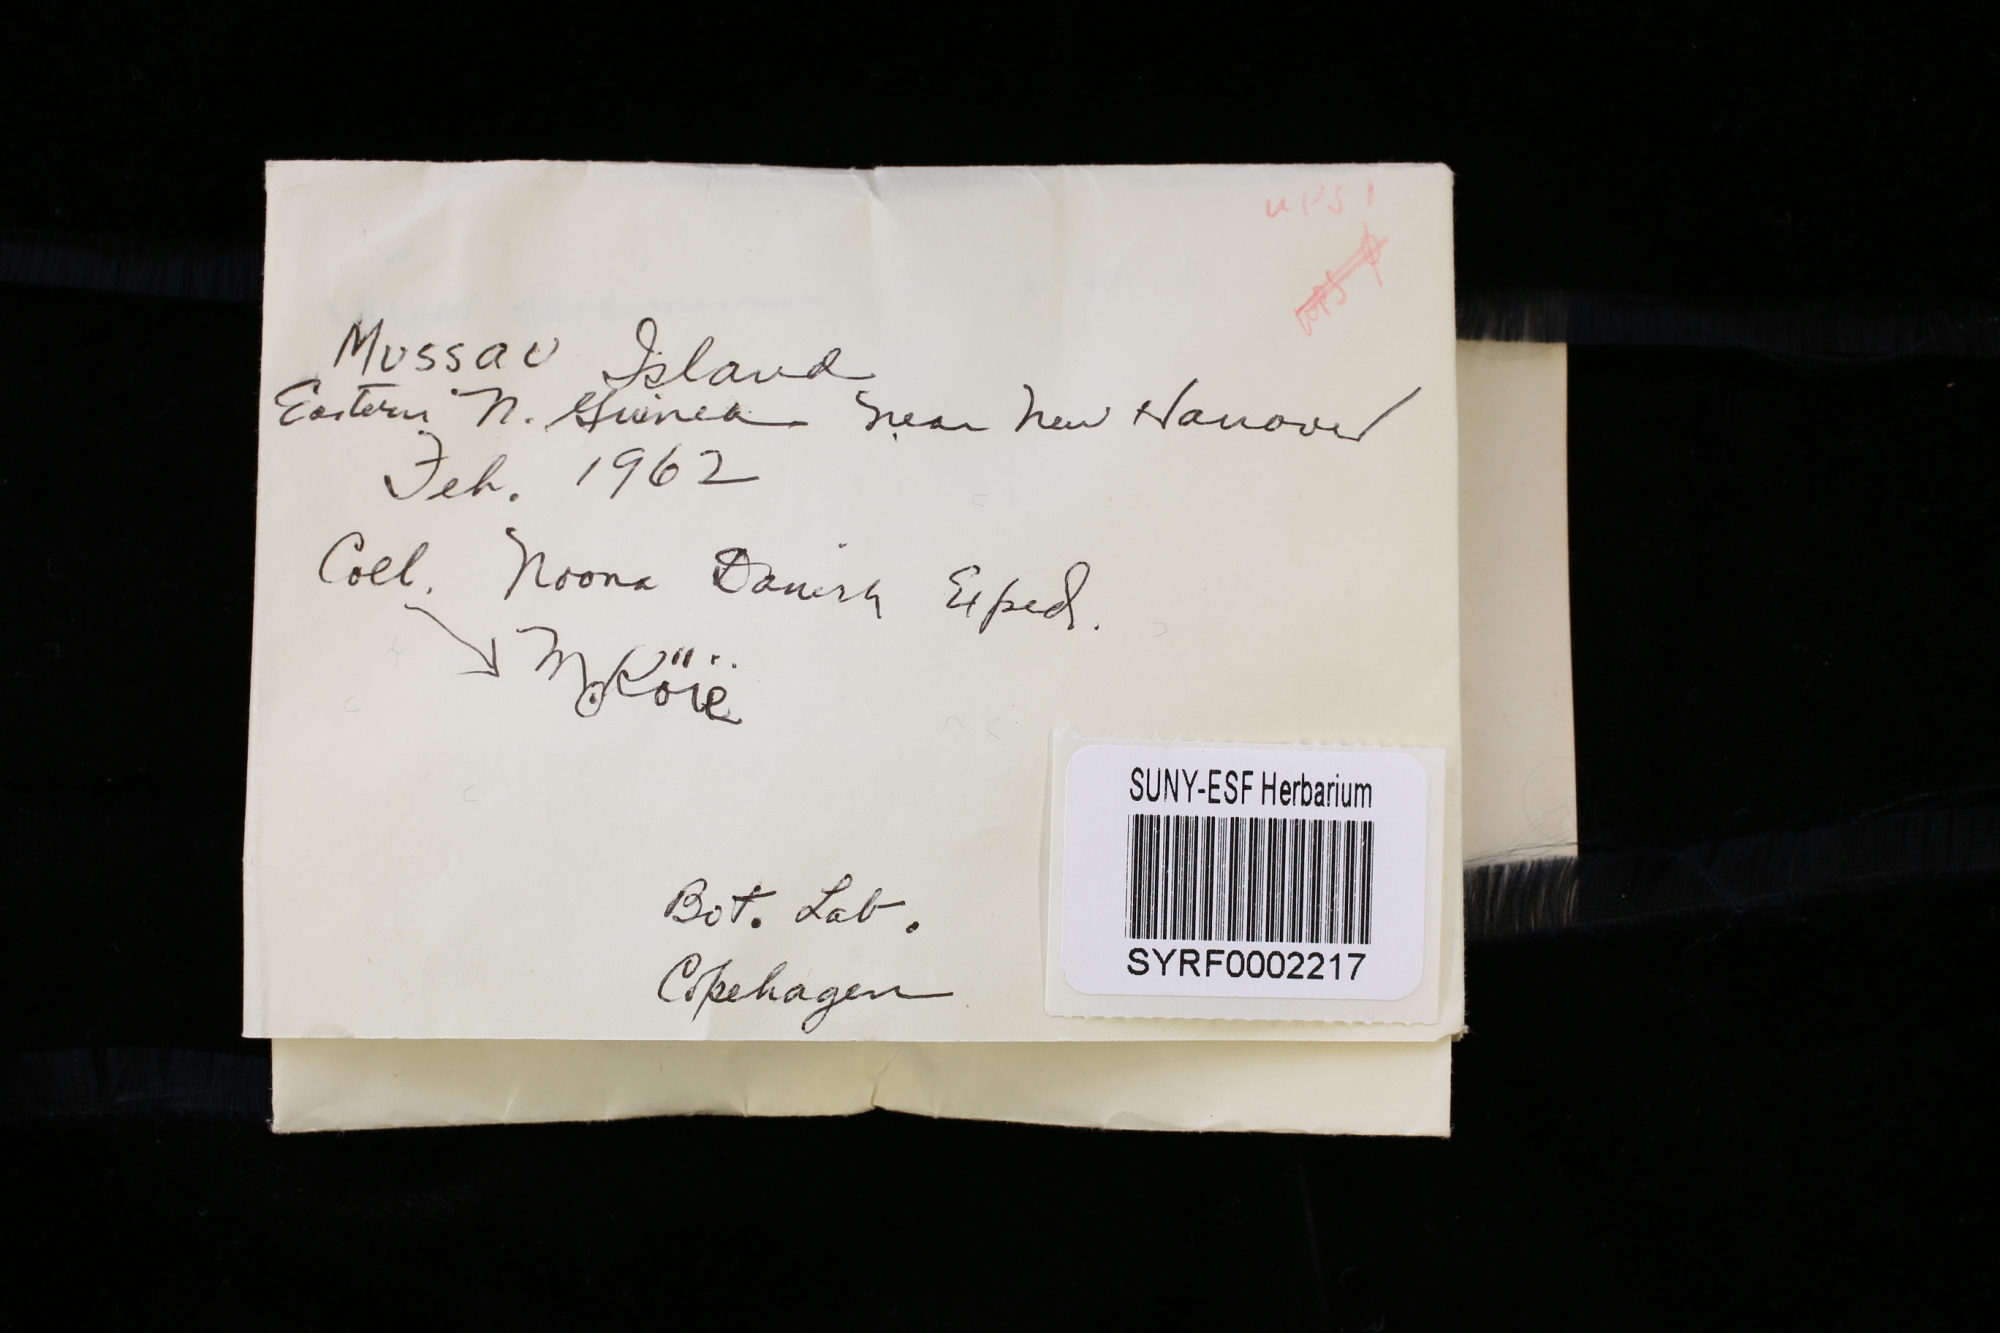 UPS 1
Mussau Island
Eastern N. Guinea near New Hanover
Feb. 1962
Coll. Noona Danish Exped.
M. Köië
Bot. Lab.
Copehagen
SUNY-ESF Herbarium
SYRF0002217